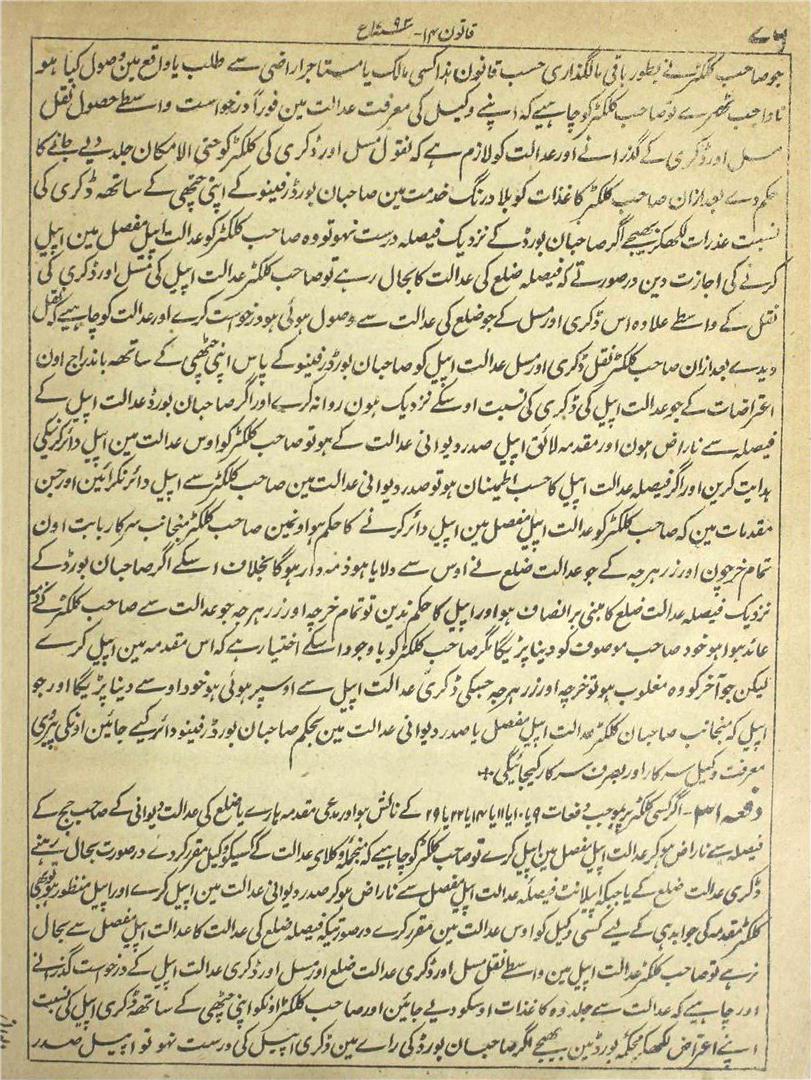 قانون ۱۴- ۱۷۹۳ع
جو صاحب کلکٹر نے بطور باقی مالگذاری حسب قانون ہذا کسی مالک یا مستاجر اراضی سے طلب یا واقع مین وصول کیا ہو
ناواجب ٹھہرے تو صاحب کلکٹر کو چاہیے کہ اپنے وکیل کی معرفت عدالت مین فوراً درخواست واسطے حصول نقل
مسل اور ڈکری کے گذرانے اور عدالت کو لازم ہے کہ نقول مسل اور ڈکری کی کلکٹر کو حتی الامکان جلد دیے جانے کا
حکم دے بعد ازان صاحب کلکٹر کاغذات کو بلا درنگ خدمت مین صاحبان بورڈ رفینو کے اپنی چٹھی کے ساتھہ ڈکری کی
نسبت عذرات لکھکر بھیجے اگر صاحبان بورڈ کے نزدیک فیصلہ درست نہو تو وہ صاحب کلکٹر کو عدالت اپیل مفصل مین اپیل
کرنے کی اجازت دین درصورتے کہ فیصلہ ضلع کی عدالت کا بحال رہے تو صاحب کلکٹر عدالت اپیل کی مسل اور ڈکری کی
نقل کے واسطے علاوہ اس ڈکری اور مسل کے جو ضلع کی عدالت سے وصول ہوئی ہو درخواست کرے اور عدالت کو چاہیے کہ نقل
دیدے بعد ازان صاحب کلکٹر نقل ڈکری اور مسل عدالت اپیل کو صاحبان بورڈ رفینو کے پاس اپنی چٹھی کے ساتھہ باندراج اون
اعتراضات کے جو عدالت اپیل کی ڈکری کی نسبت اوسکے نزدیک ہون روانہ کرے اور اگر صاحبان بورڈ عدالت اپیل کے
فیصلہ سے ناراض ہون اور مقدمہ لائق اپیل صدر دیوانی عدالت کے ہو تو صاحب کلکٹر کو اوس عدالت مین اپیل دائر کرنیکی
ہدایت کرین اور اگر فیصلہ عدالت اپیل کا حسب اطمینان ہو تو صدر دیوانی عدالت مین صاحب کلکٹر سے اپیل دائر نکرائین اور جن
مقدمات مین کہ صاحب کلکٹر کو عدالت اپیل مفصل مین اپیل دائر کرنے کا حکم ہو اونمین صاحب کلکٹر منجانب سرکار بابت اون
تمام خرچون اور زر ہرجہ کے جو عدالت ضلع نے اوس سے دلایا ہو ذمہ دار ہوگا بخلاف اسکے اگر صاحبان بورڈ کے
نزدیک فیصلہ عدالت ضلع کا مبنی بر انصاف ہو اور اپیل کا حکم ندین تو تمام خرچہ اور زر ہرجہ جو عدالت سے صاحب کلکٹر کے ذمہ
عائد ہوا ہو خود صاحب موصوف کو دینا پڑیگا مگر صاحب کلکٹر کو باوجود اسکے اختیار ہے کہ اس مقدمہ مین اپیل کرے
لیکن جو آخر کو وہ مغلوب ہو تو خرچہ اور زر ہرجہ جسکی ڈکری عدالت اپیل سے اوسپر ہوئی ہو خود اوسے دینا پڑیگا اور جو
اپیل کہ منجانب صاحبان کلکٹر عدالت اپیل مفصل یا صدر دیوانی عدالت مین بحکم صاحبان بورڈ رفینو دائر کیے جائین اونکی پیروی
معرفت وکیل سرکار اور بصرف سرکار کیجائیگی +
دفعہ ۳۱- اگر کسی کلکٹر پر بموجب دفعات ۹ یا ۱۰ یا ۱۱ یا ۱۴ یا ۲۲ یا ۲۹ کے نالش ہو اور مدعی مقدمہ ہارے یا ضلع کی عدالت دیوانی کے صاحب جج کے
فیصلہ سے ناراض ہوکر عدالت اپیل مفصل مین اپیل کرے تو صاحب کلکٹر کو چاہیے کہ منجملہ وکلای عدالت کے کسیکو وکیل مقرر کردے درصورت بحال رہنے
ڈکری عدالت ضلع کے یا جبکہ اپیلانٹ فیصلہ عدالت اپیل مفصل سے ناراض ہوکر صدر دیوانی عدالت مین اپیل کرے اور اپیل منظور ہو تو بھی
کلکٹر مقدمہ کی جوابدہی کے لیے کسی وکیل کو اوس عدالت مین مقرر کرے درصورتیکہ فیصلہ ضلع کی عدالت کا عدالت اپیل مفصل سے بحال
نرہے تو صاحب کلکٹر عدالت اپیل مین واسطے نقل مسل اور ڈکری عدالت ضلع اور مسل اور ڈکری عدالت اپیل کے درخواست گذرانے
اور چاہیے کہ عدالت سے جلد وہ کاغذات اوسکو دیے جائین اور صاحب کلکٹر اونکو اپنی چٹھی کے ساتھہ ڈکری اپیل کی نسبت
اپنے اعتراض لکھکر محکمہ بورڈ مین بھیجے اگر صاحبان بورڈ کی راے مین ڈکری اپیل کی درست نہو تو اپیل صدر